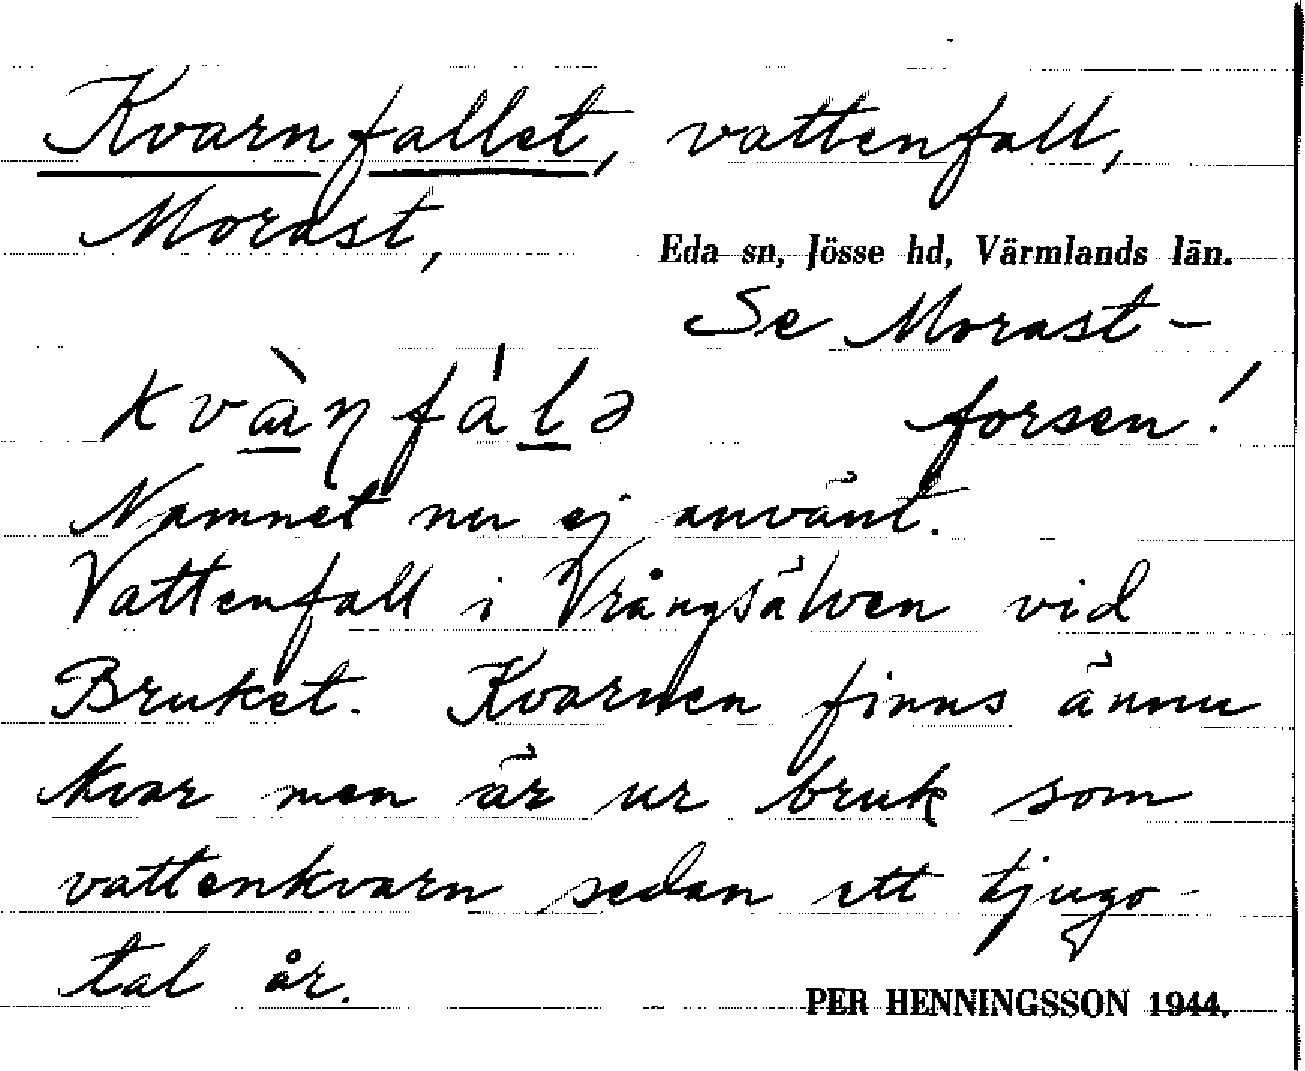 Kvarnfallet, vattenfall,
Morast,
Eda sn, Jösse hd, Värmlands län.
Se Morast-
kvàɳfálə forsen!
Namnet nu ej använt.
Vattenfall i Vrångsälven vid
Bruket. Kvarnen finns ännu
kvar men är ur bruk som
vattenkvarn sedan ett tjugo-
tal år.
PER HENNINGSSON 1944.